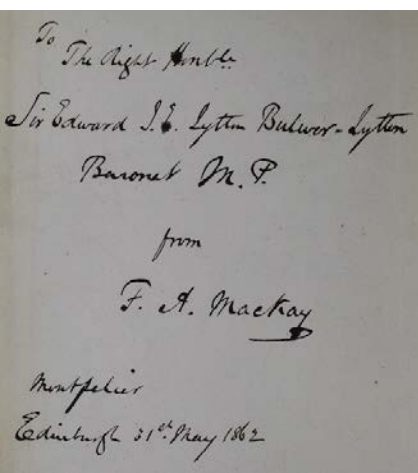 To
The Right Honble
Sir Edward J. E. Lytton Bulwer-Lytton
Baronet M. P.
from
F. A. Mackay
Montpelier
Edinburgh 31st May 1862